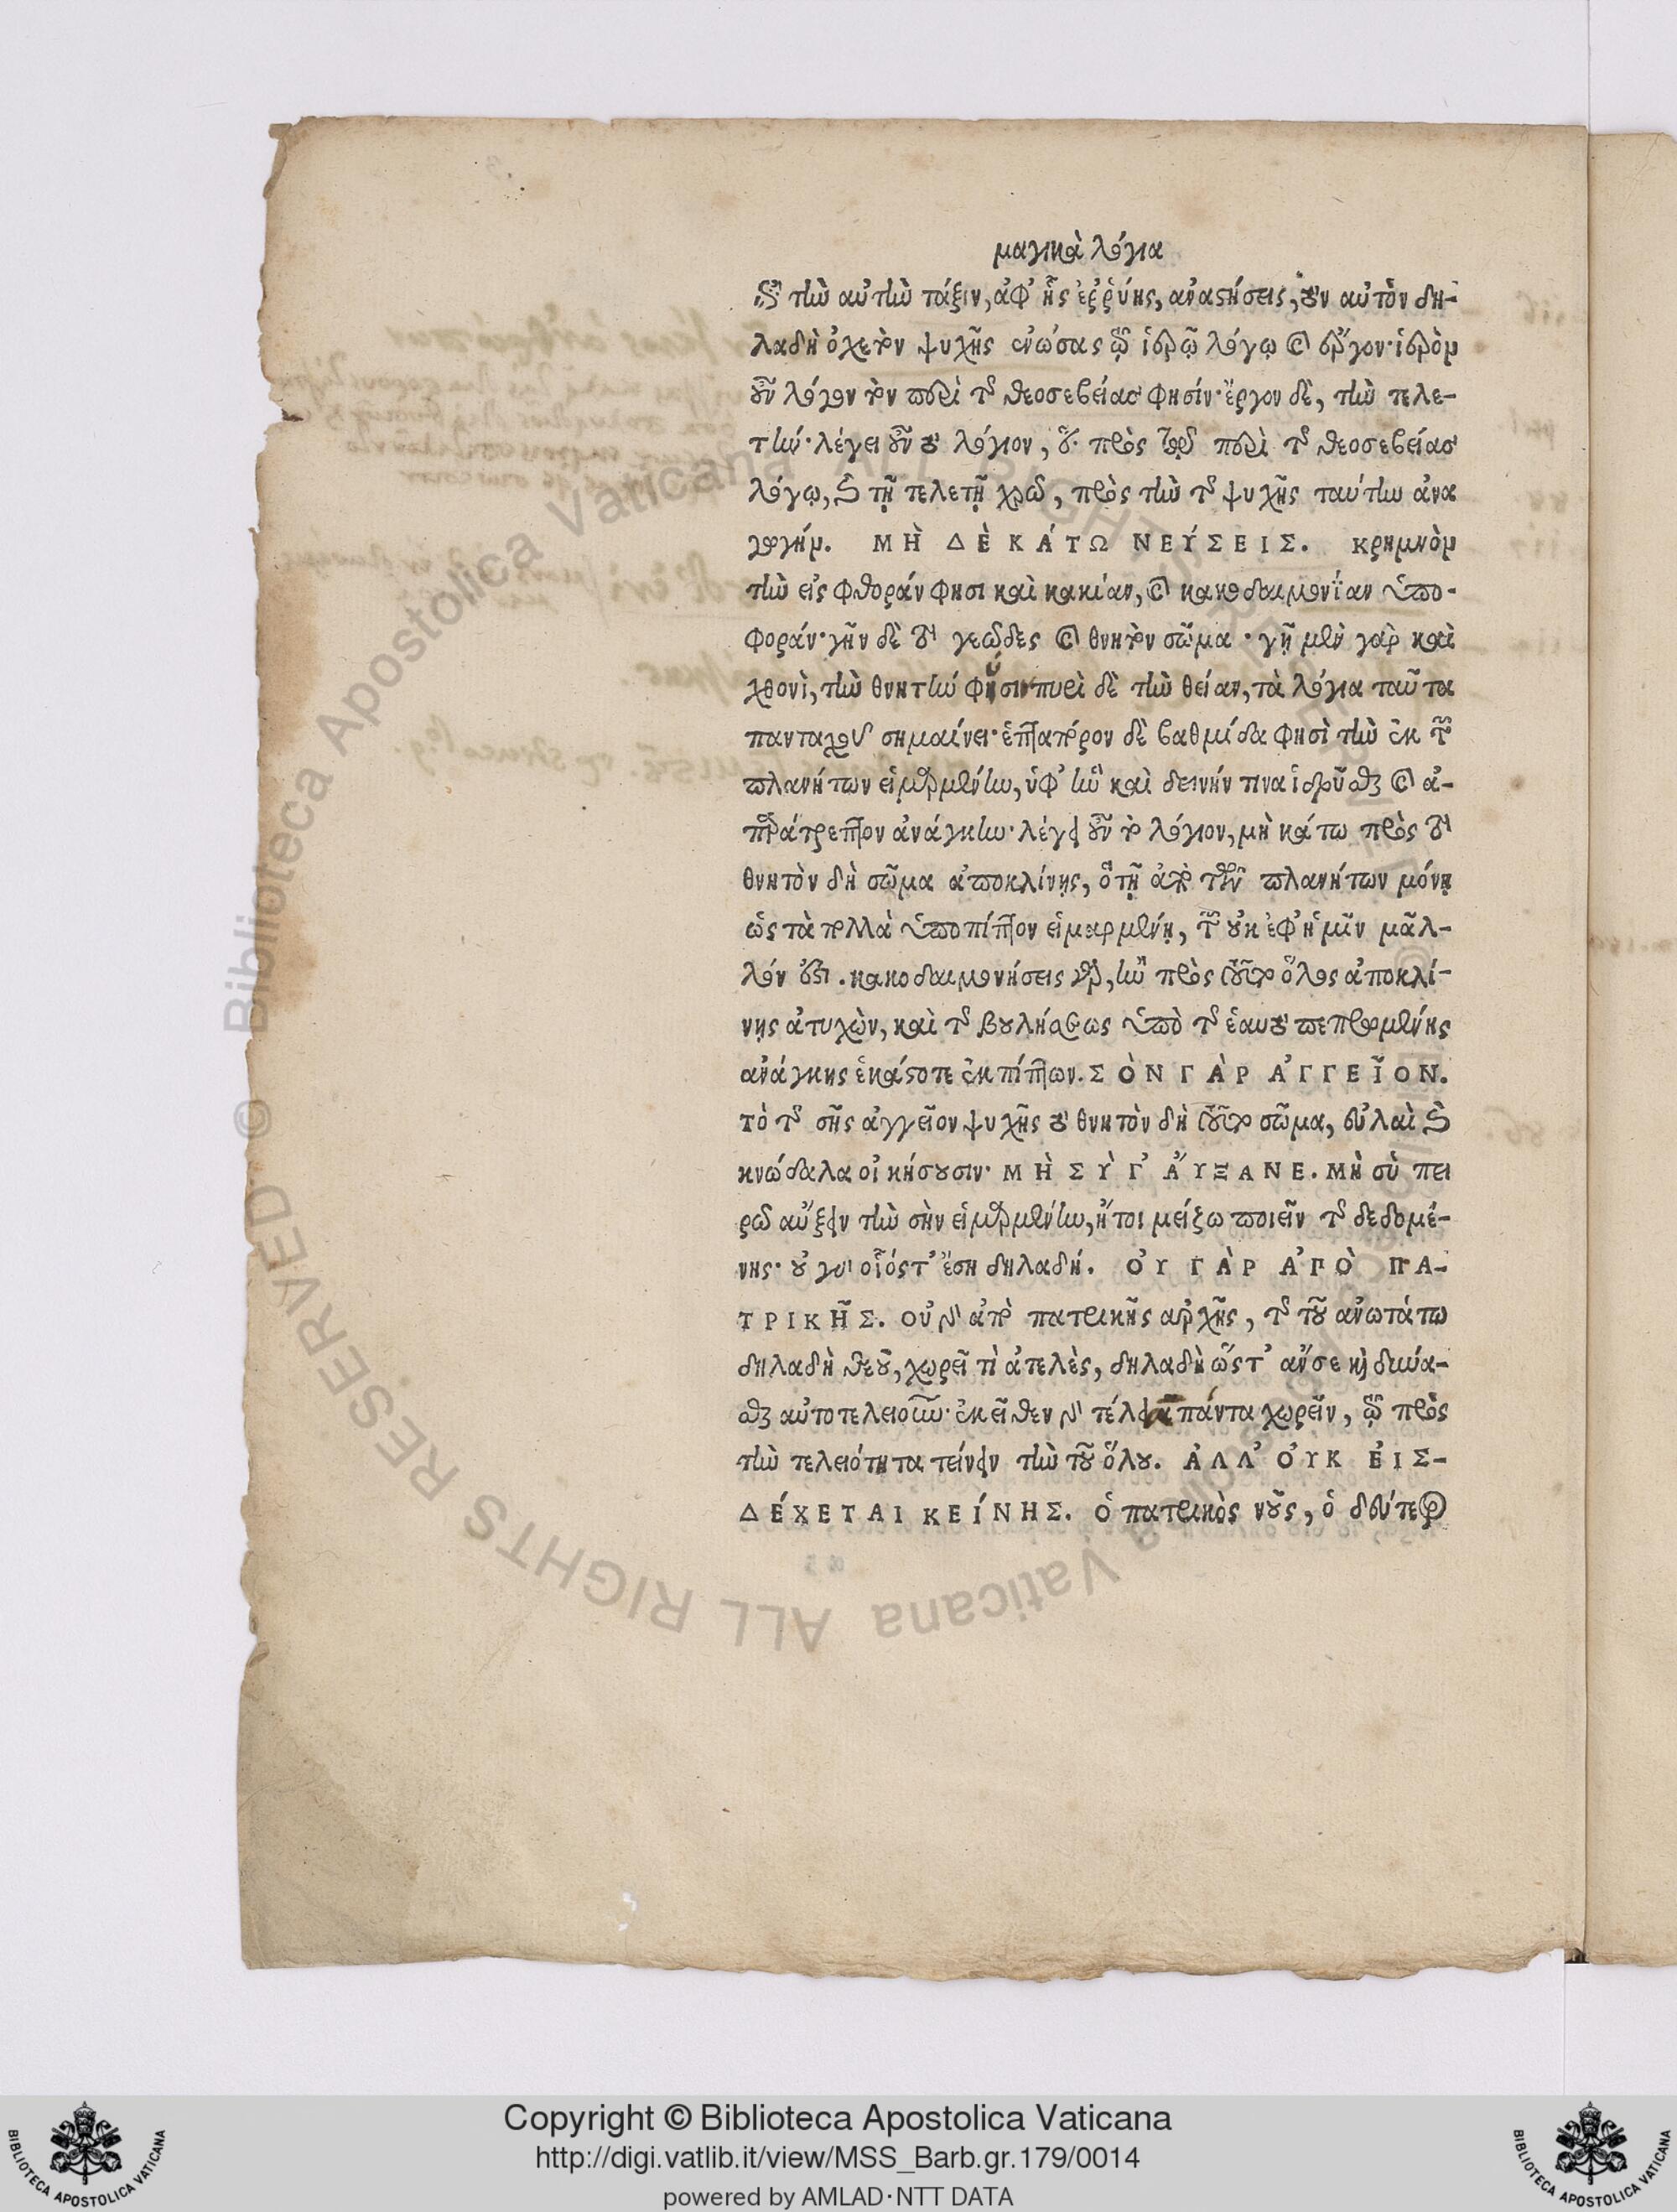 μαγικὰ λόγια
ἐπὶ τὴν αὐτὴν τάξιν, ἀφ' ἧς ἐῤῥύης, ἀναστήσεις, τουν αὐτὸν δη-
λαδὴ ὀχετὸν ψυχῆς ἑνώσας τῷ ἱερῷ λόγῳ καὶ ἔργον· ἱερὸν
οὖν λόγον τὸν περὶ τῆς θεοσεβείας φησίν· ἔργον δὲ, τὴν τελε-
τήν· λέγει οὖν τὸ λόγιον, πρὸς τῷ περὶ τῆς θεοσεβείας
λόγῳ, ἔτι τῇ τελετῇ χρῶ, πρὸς τὴν τῆς ψυχῆς ταύτην ἀνα
γωγήν. ΜῊ ΔῈ ΚΆΤΩ ΝΕΎΣΕΙΣ. κρημνὸν
τὴν εἰς φθοράν φησι καὶ κακίαν, καὶ κακοδαιμονΐαν ὑπο-
φοράν· γῆν δὲ τὸ γεῶδες καὶ θνητὸν σῶμα · γῇ μὲν γὰρ καὶ
χθονὶ, τὴν θνητὴν φύσιν πυρὶ δὲ τὴν θείαν, τὰ λόγια ταῦτα
πανταχοῦ σημαίνει· ἑπτάπορον δὲ βαθμίδα φησὶ τὴν ἐκ τῶν
πλανήτων εἱμαρμένην, ὑφ' ἣν καὶ δεινήν τινα ἱδρῦσθαι καὶ ἀ-
παράτρεπτον ἀνάγκην· λέγει οὖν τὸ λόγιον, μὴ κάτω πρὸς τὸ
θνητὸν δὴ σῶμα ἀποκλίνῃς, ὃ τῇ ἀπὸ τῶν πλανήτων μόνῃ
ὡς τὰ πολλὰ ὑποπίπτον εἱμαρμένῃ, τῶν οὐκ ἐφ' ἡμῖν μᾶλ-
λόν ἐστι. κακοδαιμονήσεις γὰρ, ἢν πρὸς τοῦτο ὅλος ἀποκλί-
νῃς ἀτυχὼν, καὶ τῆς βουλήσεως ὑπὸ τῆς ἑαυτοῦ πεπρωμένης
ἀνάγκης ἑκάστοτε ἐκπίπτων. ΣῸΝ ΓᾺΡ ἈΓΓΕΙ͂ΟΝ.
τὸ τῆς σῆς ἀγγεῖον ψυχῆς τὸ θνητὸν δὴ τοῦτο σῶμα, εὐλαὶ καὶ
κνώδαλα οἰκήσουσιν· ΜῊ ΣῪ Γ' ἌΥΞΑΝΕ. Μὴ σὺ πει
ρῶ αὔξειν τὴν σὴν εἱμαρμένην, ἤτοι μείζω ποιεῖν τῆς δεδομέ-
νης· οὐ γὰρ οἷός τ' ἔσῃ δηλαδή. ΟΥ̓ ΓᾺΡ ἈΠῸ ΠΑ-
ΤΡΙΚΗ͂Σ. Οὐ γὰρ ἀπὸ πατρικῆς ἀρχῆς, τῆς τοῦ ἀνωτάτω
δηλαδὴ θεοῦ, χωρεῖ τι ἀτελὲς, δηλαδὴ ὥστ' ἄν σε καὶ δύνα-
σθαι αὐτὸ τελειοῦν· ἐκεῖθεν γὰρ τέλεια πάντα χωρεῖν, τῷ πρὸς
τὴν τελειότητα τείνειν τὴν τοῦ ὅλου. ἈΛΛ' ὈΥΚ ἘΙΣ-
ΔΈΧΕΤΑΙ ΚΕΊΝΗΣ. ὁ πατρικὸς νοῦς, ὁ δεύτερος
Copyright © Biblioteca Apostolica Vaticana
http://digi.vatlib.it/view/MSS_Barb.gr.179/0014
powered by AMLAD·NTT DATA
BIBLIOTECA APOSTOLICA VATICANA
BIBLIOTECA APOSTOLICA VATICANA
© Biblioteca Apostolica Vaticana ALL RIGHTS RESERVED